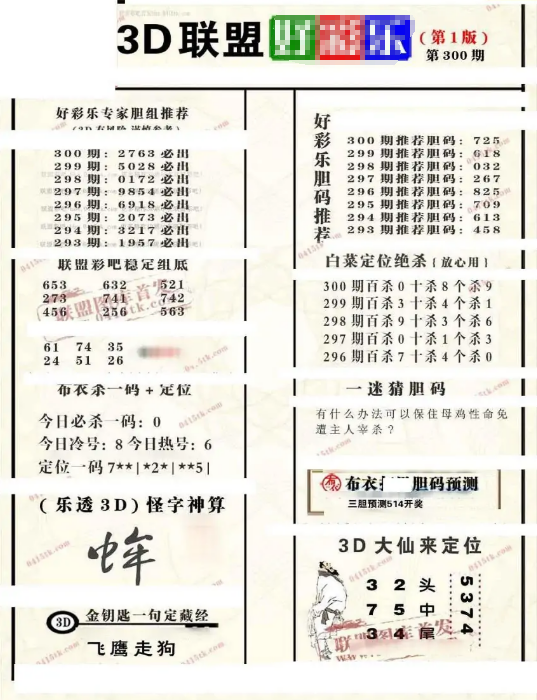 3D联盟 好彩乐 (第1版)
第300期
好彩乐专家胆组推荐
(3D有风险 谨慎参考)
300期: 2763必出
299期: 5028必出
298期: 0172必出
297期: 9854必出
296期: 6918必出
295期: 2073必出
294期: 3217必出
293期: 1957必出
联盟彩吧稳定组底
653 632 521
273 741 742
456 256 563
61 74 35
24 51 26
布衣杀一码+定位
今日必杀一码: 0
今日冷号: 8 今日热号: 6
定位一码 7**|*2*|**5|
(乐透3D)怪字神算
3D 金钥匙一句定藏经
飞鹰走狗
好彩乐胆码推荐
300期推荐胆码: 725
299期推荐胆码: 618
298期推荐胆码: 032
297期推荐胆码: 267
296期推荐胆码: 825
295期推荐胆码: 709
294期推荐胆码: 613
293期推荐胆码: 458
白菜定位绝杀{放心用}
300期百杀0十杀8个杀9
299期百杀3十杀4个杀1
298期百杀9十杀3个杀6
297期百杀0十杀1个杀3
296期百杀7十杀4个杀0
一迷猜胆码
有什么办法可以保住母鸡性命免
遭主人宰杀?
布衣 胆码预测
三胆预测514开奖
3D大仙来定位
3 2 头
7 5 中
3 4 尾
5374
联盟图库首发
0415tk.com